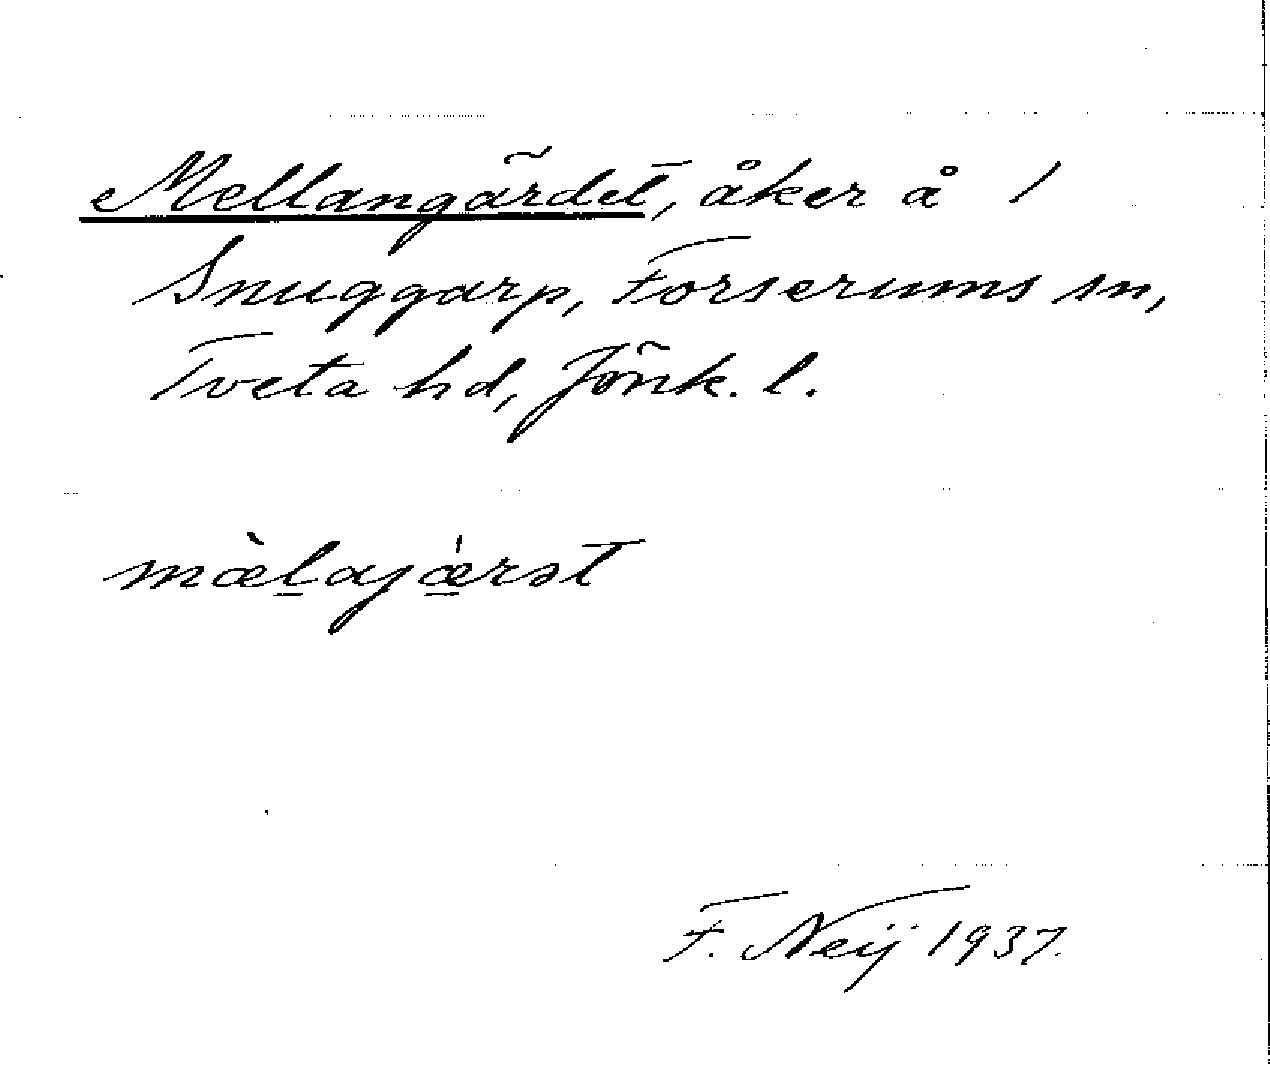 Mellangärdet, åker å 1
Snuggarp, Forserums sn,
Tveta hd, Jönk. l.
mæ̀l̲ajǽ̲rət
F. Neij 1937.